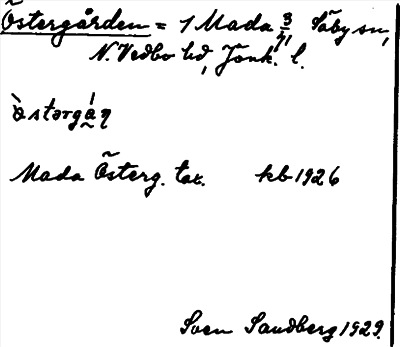 Östergården = 1 Mada 3/21 Säby sn,
N. Vedbo hd, Jönk. l.
òstərgá̰η
Mada Österg. tax. kb 1926
Sven Sandberg 1929.